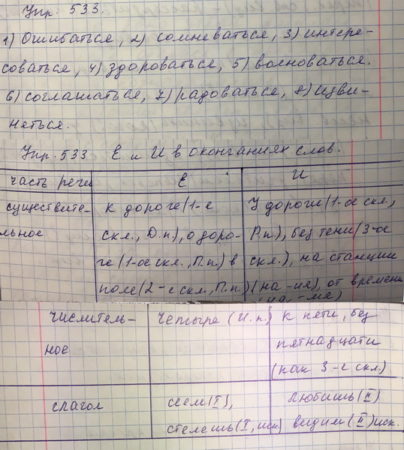 Упр. 533.
1) Ошибаться, 2) сомневаться, 3) интере-
соваться, 4) здороваться, 5) волноваться.
6) соглашаться, 7) радоваться, 8) изви-
няться.
Упр. 533 Е и И в окончаниях слов.
часть речи Е И
существите-
льное
к дороге (1-е
скл., Д.п), о доро-
ге (1-ое скл., П.п) в
поле (2-е скл., П.п)
У дороги (1-ое скл,
Р.п), без тени (3-ое
скл.), на станции
(на -ия), от времени
(на -мя)
числитель-
ное
четыре (И.п)
к пяти, без
пятнадцати
(как 3-е скл)
глагол
сеем (I),
стелешь (I, искл)
любишь (II)
видим (II) иск.